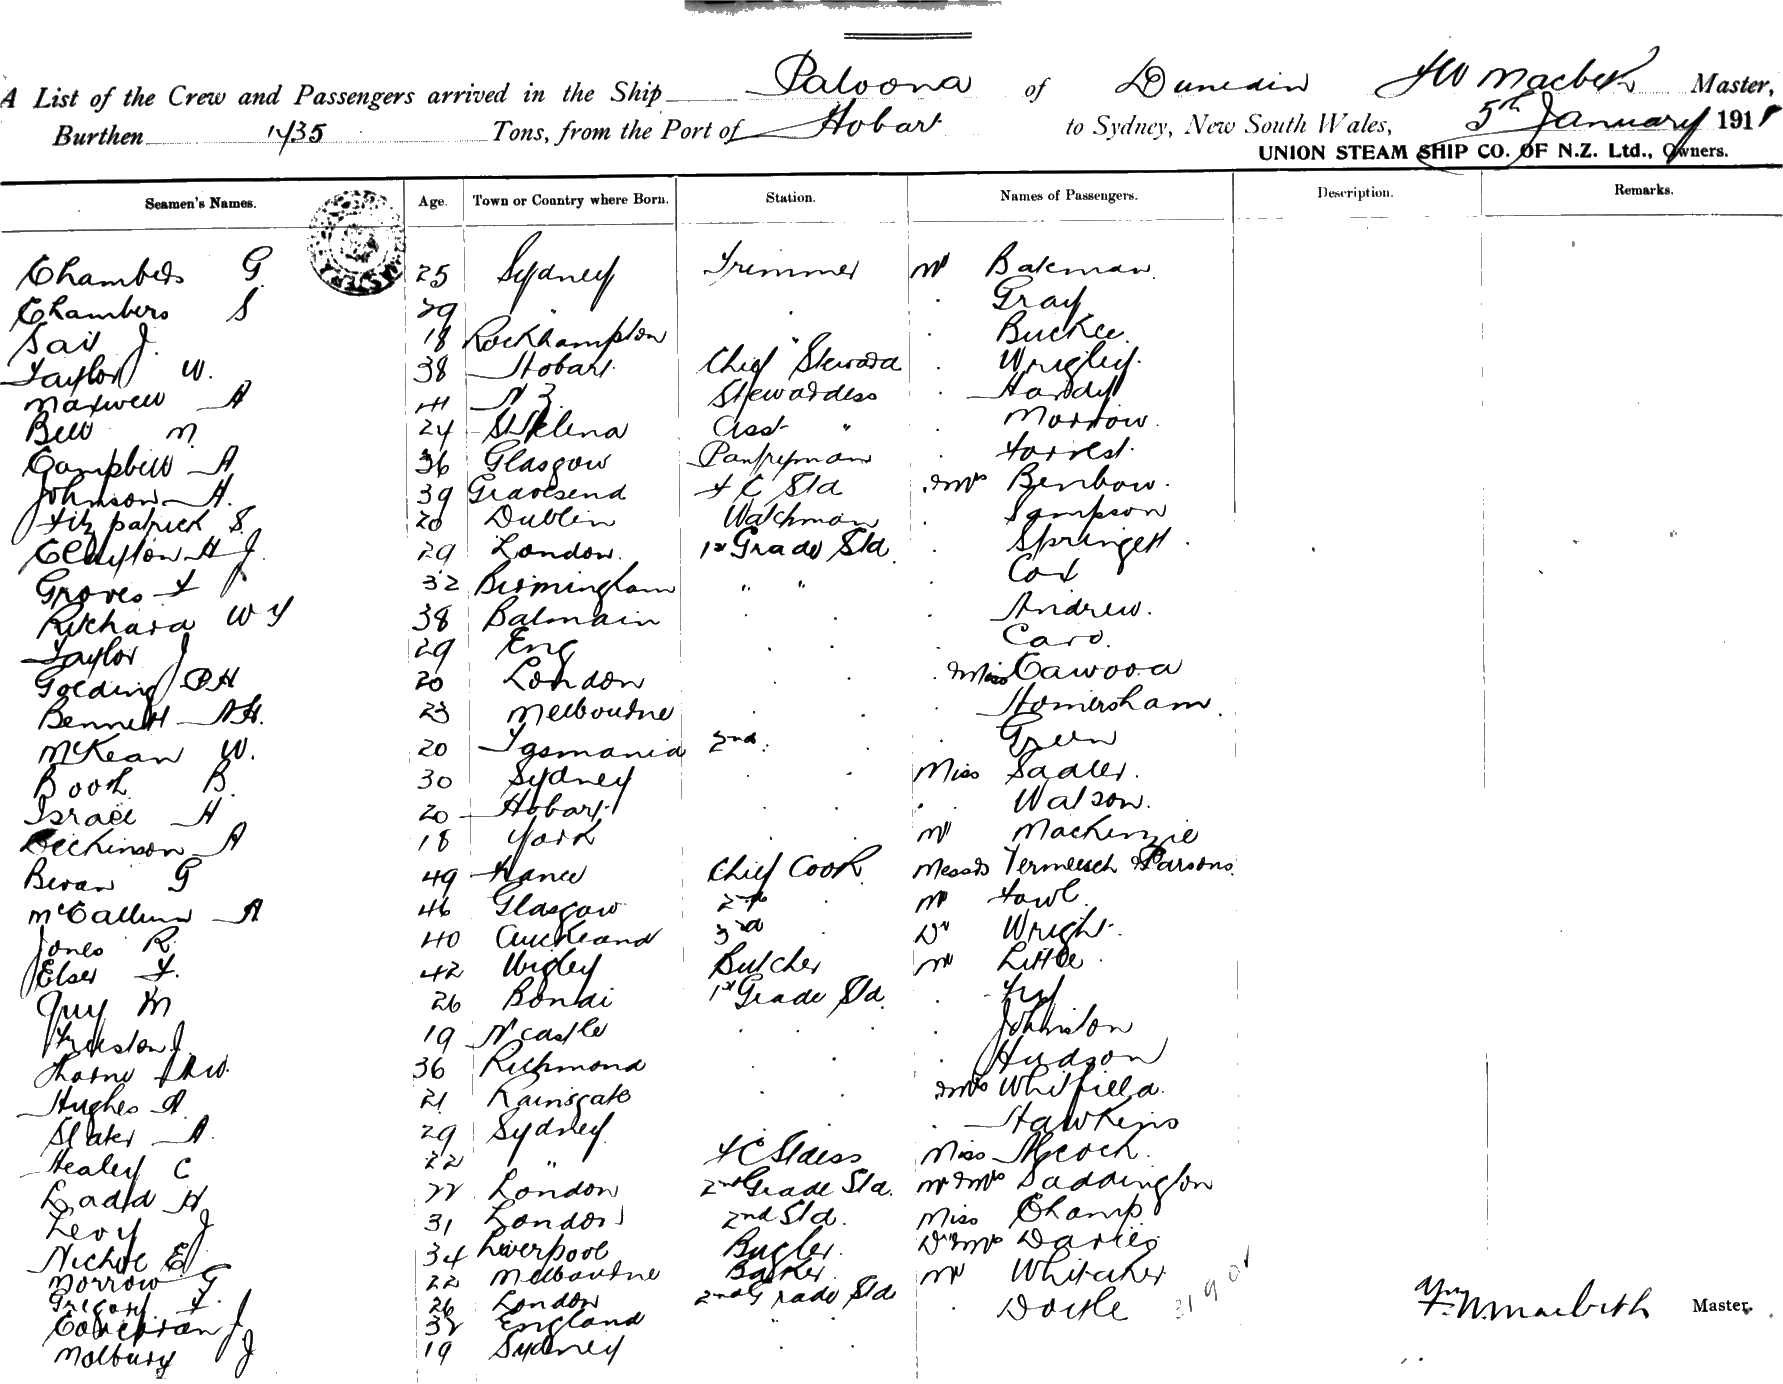 A List of the Crew and Passengers arrived in the Ship Paloona of Dunedin Macbeth Master,
Burthen Tons, from the Port of Hobart to Sydney, New South Wales, 5th January 191
UNION STEAM SHIP CO. OF N.Z. Ltd., Owners.
Seamen's Names. Age. Town or Country where Born. Station. Names of Passengers. Description. Remarks.
Chambers G 25 Sydney Trimmer Mr Bateman
Chambers S 29 " Gray
J. 18 Rockhampton " Buckle
Taylor W. 38 Hobart Chief Steward Wrigley
Maxwell A 41 N Z. Stewardess Hardy
Bell M 24 St Helena Asst " Morrow
Campbell A 36 Glasgow Pantryman Forrest
Johnson H. 39 Gravesend F C Std & Mrs Benbow
Fitzpatrick S. 20 Dublin Watchman Sampson
Clayton H J. 29 London 1st Grade Std Springett
Groves F 32 Birmingham " " Cox
Ritchard W 38 Balmain Andrew
Taylor J 29 Eng Caro
Golding P H 20 London & Miss Cawood
Bennett A H. 23 Melbourne Homersham
McKean W. 20 Tasmania 2nd Green
Booth B. 30 Sydney Miss Sadler
Israel H 20 Hobart Watson
Dickinson A 18 York Mr Mackenzie
Bevan G 49 France Chief Cook Messrs Termeesch & Parsons
McCallum A 46 Glasgow 2nd Mr Fowl
Jones R. 40 Auckland 3rd Dr Wright
Elser F. 42 Wigley Butcher Mr Little
Guy M 26 Bondi 1st Grade Std
J. 19 N'castle Johnston
Thorne 36 Richmond Hudson
Hughes A 21 Ramsgate & Mrs Whitfield
Slater A 29 Sydney Hawkins
Healey C 22 " F C Stdess Miss Alcock
Ladd H 22 London 2nd Grade Std. Mr & Mrs Saddington
Levy J 31 London 2nd Std. Miss Champ
E 34 Liverpool Bugler Dr & Mrs Davies
Morrow G 22 Melbourne Barker Mr Whitaker
Gregory F. 26 London 2nd Grade Std Doyle
Corcoran J 32 England Macbeth Master.
Molbury J 19 Sydney